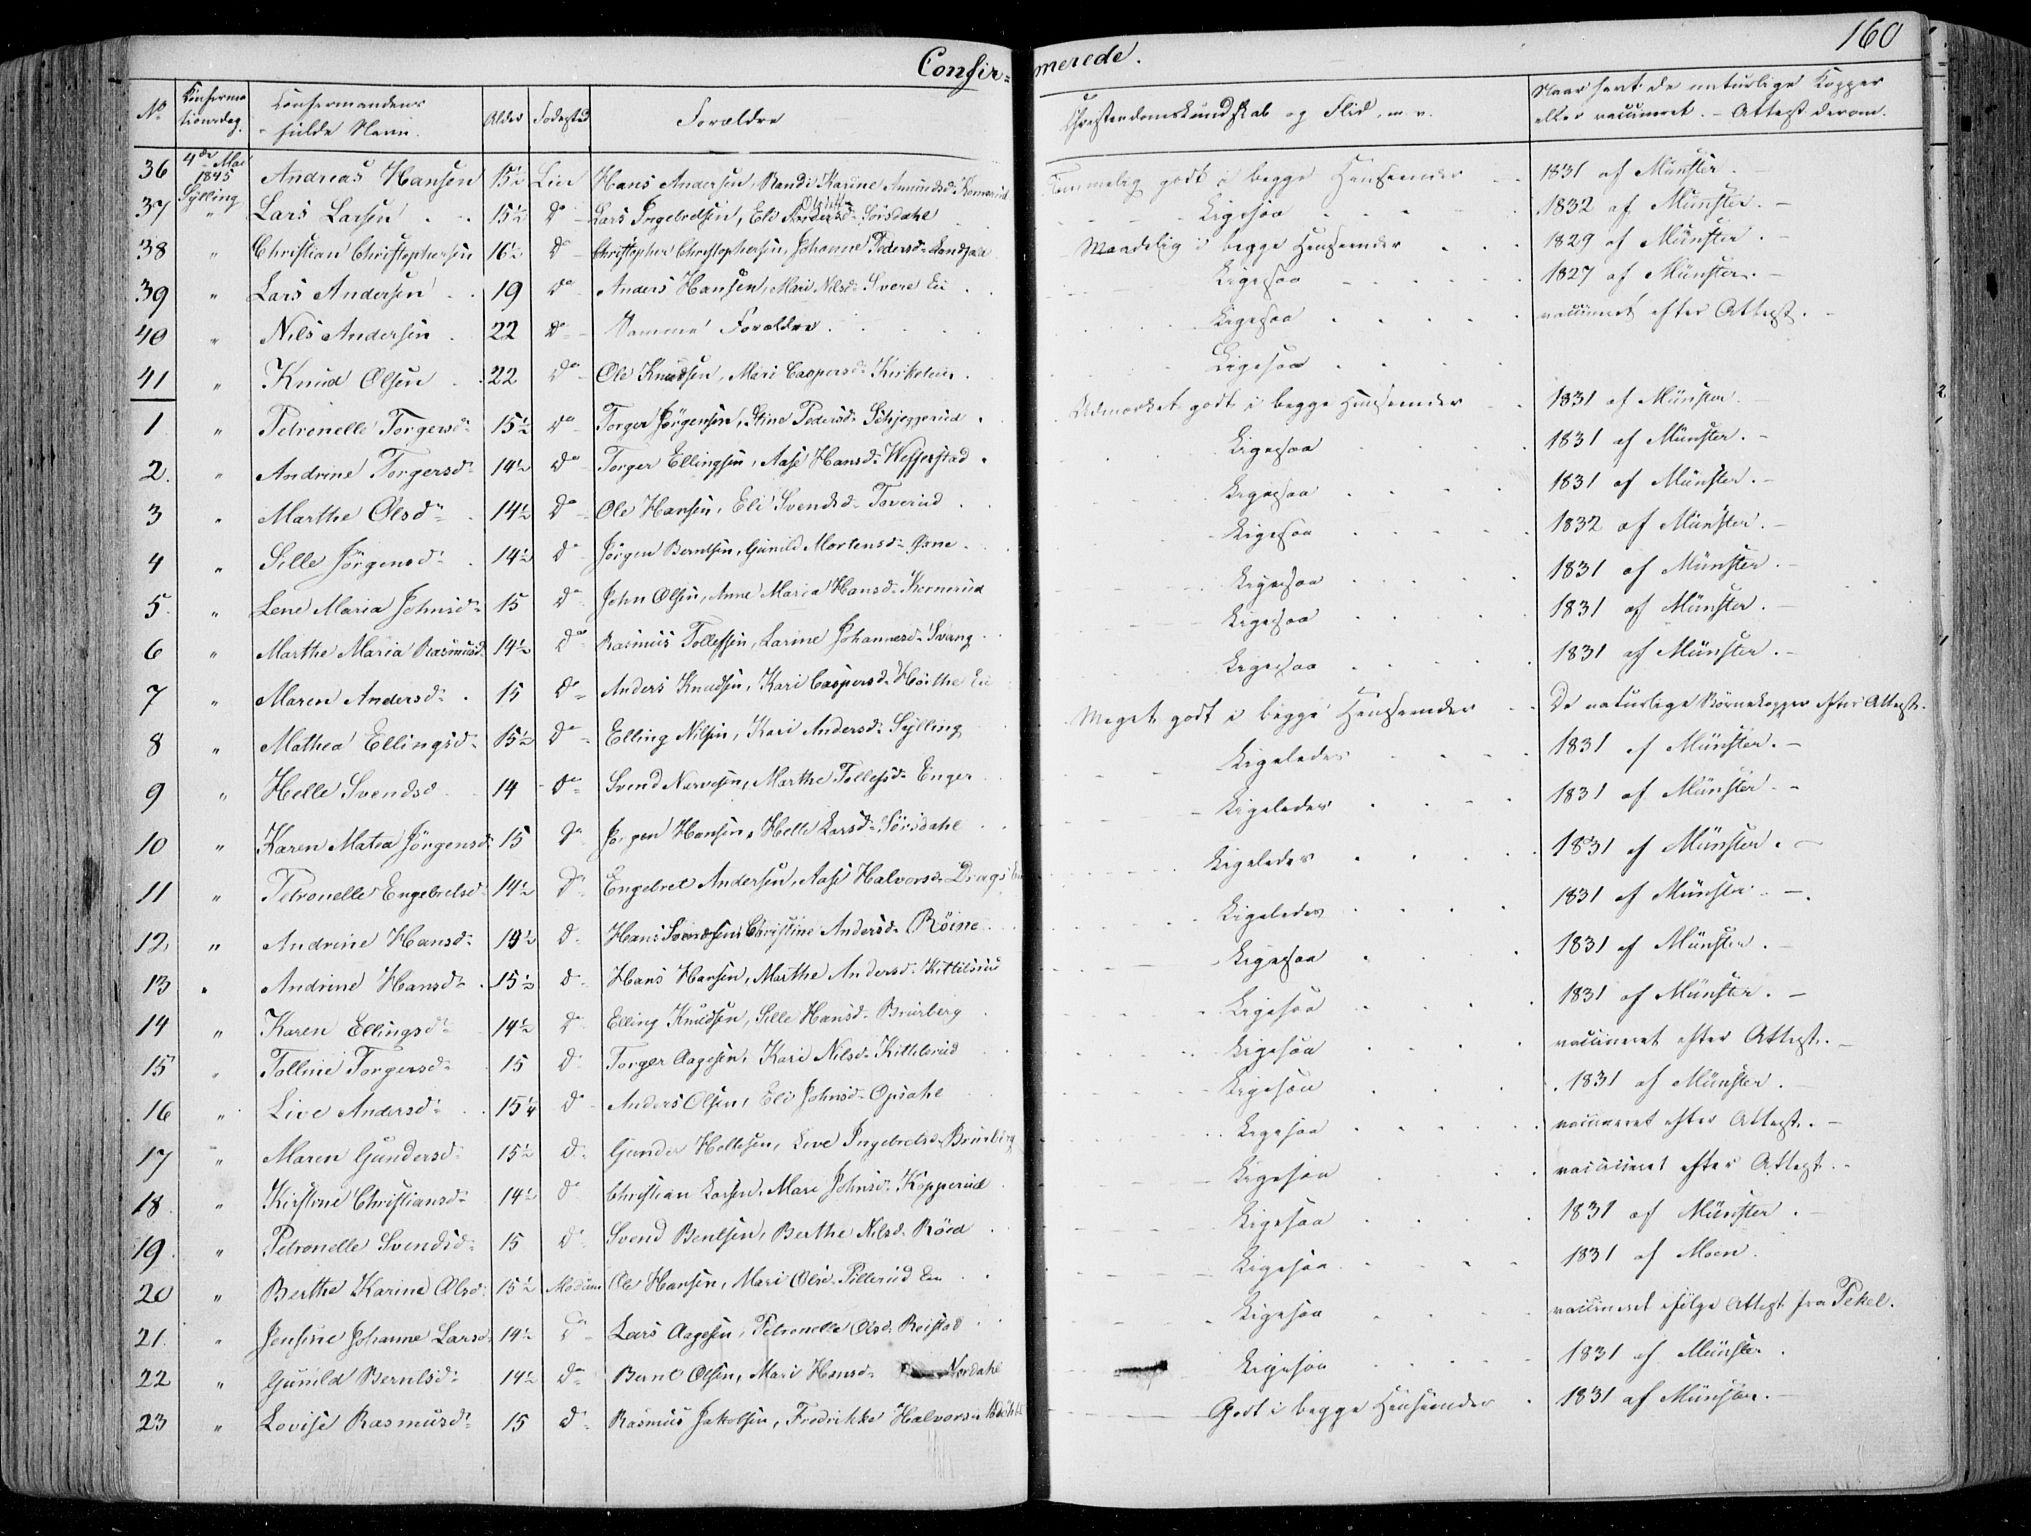 Confirmerede. 160
No Confirmationsdag. Confirmandens fulde Navn. Alder Fødested Forældre Christendomskundskab og Flid, m. v. Naar havt de naturlige Kopper eller vaccineret. - Attest derom.
36 4de Mai 1845 Sylling Andreas Hansen 15½ Lier Hans Andersen, Randi Karine Amundsd. Temmelig godt i begge Henseender 1831 af Münster.
37 " Lars Larsen 15½ do Lars Ingebretsen, Eli Andersd. Sørsdahl Ligesaa 1832 af Münster.
38 " Christian Christophersen 16½ do Christopher Christophersen, Johanne Pedersd. Maadelig i begge Henseender 1829 af Münster.
39 " Lars Andersen 19 do Anders Hansen, Mari Nilsd. Svere Eie Ligesaa 1827 af Münster.
40 " Nils Andersen 22 do Samme Forældre. Ligesaa vaccineret efter Attest.
41 " Knud Olsen 22 do Ole Knudsen, Mari Caspersd. Ligesaa
1 " Petronelle Torgersd. 15½ do Torger Jörgensen, Stine Pedersd. Schjeggerud Udmærket godt i begge Henseender 1831 af Münster.
2. " Andrine Torgersd. 14½ do Torger Ellingsen, Aase Hansd. Wefferstad Ligesaa 1831 af Münster.
3 " Marthe Olsd. 14½ do Ole Hansen, Eli Svendsd. Toverud Ligesaa 1831 af Münster.
4 " Sille Jörgensd. 14½ do Jörgen Berntsen, Gunild Mortensd. Ligesaa 1832 af Münster.
5. " Lene Maria Johnsd. 15 do John Olsen, Anne Maria Hansd. Ligesaa 1831 af Münster.
6 " Marthe Maria Rasmusd. 14½ do Rasmus Tollefsen, Larine Johannesd. Svang Ligesaa 1831 af Münster.
7 " Maren Andersd. 15 do Anders Knudsen, Kari Caspersd. Hörthe Eie Ligesaa 1831 af Münster.
8 " Mathea Ellingsd. 15½ do Elling Nilsen, Kari Andersd. Sylling Meget godt i begge Henseender De naturlige Börnekopper efter Attest.
9 " Helle Svendsd. 14 do Svend Narvesen, Marthe Tollefsd. Enger Ligeledes 1831 af Münster.
10 " Karen Matea Jörgensd. 15 do Jörgen Hansen, Helle Larsd. Sörsdahl Ligeledes 1831 af Münster.
11 " Petronelle Engebretsd. 14½ do Engebret Andersen, Aase Halvorsd. Drags Eie Ligeledes 1831 af Münster.
12. " Andrine Hansd. 14½ do Hans Svendsen, Christine Andersd. Röine Ligeledes 1831 af Münster.
13 " Andrine Hansd. 15½ do Hans Hansen, Marthe Andersd. Kittilsrud Ligesaa 1831 af Münster.
14 " Karen Ellingsd. 14½ do Elling Knudsen, Sille Hansd. Brurberg Ligesaa 1831 af Münster.
15 " Tolline Torgersd. 15 do Torger Aagesen, Kari Nilsd. Kittilsrud Ligesaa vaccineret efter Attest.
16 " Live Andersd. 15¼ do Anders Olsen, Eli Johnsd. Opsahl Ligesaa 1831 af Münster.
17 " Maren Gundersd. 15½ do Gunder Hellesen, Live Ingebretsd. Brurberg Ligesaa vaccineret efter Attest.
18 " Kirstine Christiansd. 14½ do Christian Larsen, Mari Johnsd. Kopperud Ligesaa vaccineret efter Attest.
19. " Petronelle Svendsd. 15 do Svend Bentsen, Berthe Nilsd. Röed Ligesaa 1831 af Münster.
20 " Berthe Karine Olsd. 15½ Modum Ole Hansen, Mari Olsd. Pillerud Eie Ligesaa 1831 af Moen.
21. " Jensine Johanne Larsd. 14½ do Lars Aagesen, Petronelle Olsd. Reistad Ligesaa vaccineret ifølge Attest fra Pekel.
22 " Gunild Berntsd. 14½ do Bernt Olsen, Mari Hansd. Nordahl Ligesaa 1831 af Münster.
23 " Lovise Rasmusd. 15 do Rasmus Jakobsen, Fredrikke Halvorsd. Godt i begge Henseender 1831 af Münster.